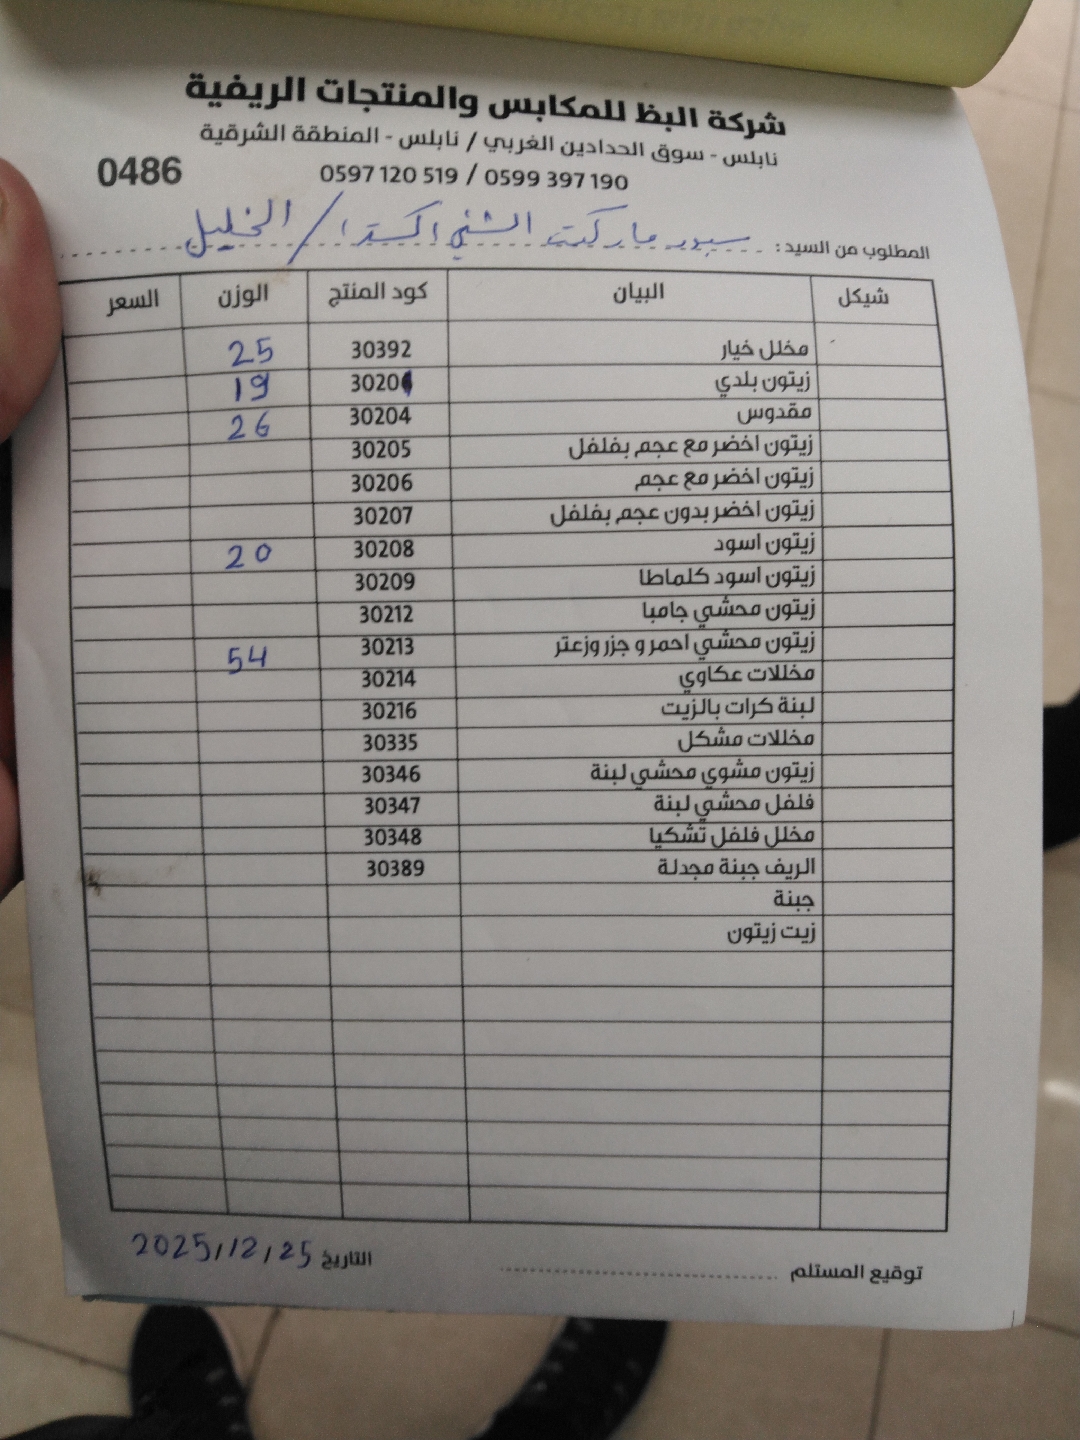 شركة البظ للمكابس والمنتجات الريفية
نابلس - سوق الحدادين الغربي / نابلس - المنطقة الشرقية
0599 397 190 / 0597 120 519
0486
المطلوب من السيد : سوبر ماركت الشني اكسترا / الخليل
شيكل البيان كود المنتج الوزن السعر
مخلل خيار 30392 25
زيتون بلدي 30201 19
مقدوس 30204 26
زيتون اخضر مع عجم بفلفل 30205
زيتون اخضر مع عجم 30206
زيتون اخضر بدون عجم بفلفل 30207
زيتون اسود 30208 20
زيتون اسود كلماطا 30209
زيتون محشي جامبا 30212
زيتون محشي احمر و جزر وزعتر 30213 54
مخللات عكاوي 30214
لبنة كرات بالزيت 30216
مخللات مشكل 30335
زيتون مشوي محشي لبنة 30346
فلفل محشي لبنة 30347
مخلل فلفل تشكيا 30348
الريف جبنة مجدلة 30389
جبنة
زيت زيتون
توقيع المستلم
التاريخ 2025/12/25